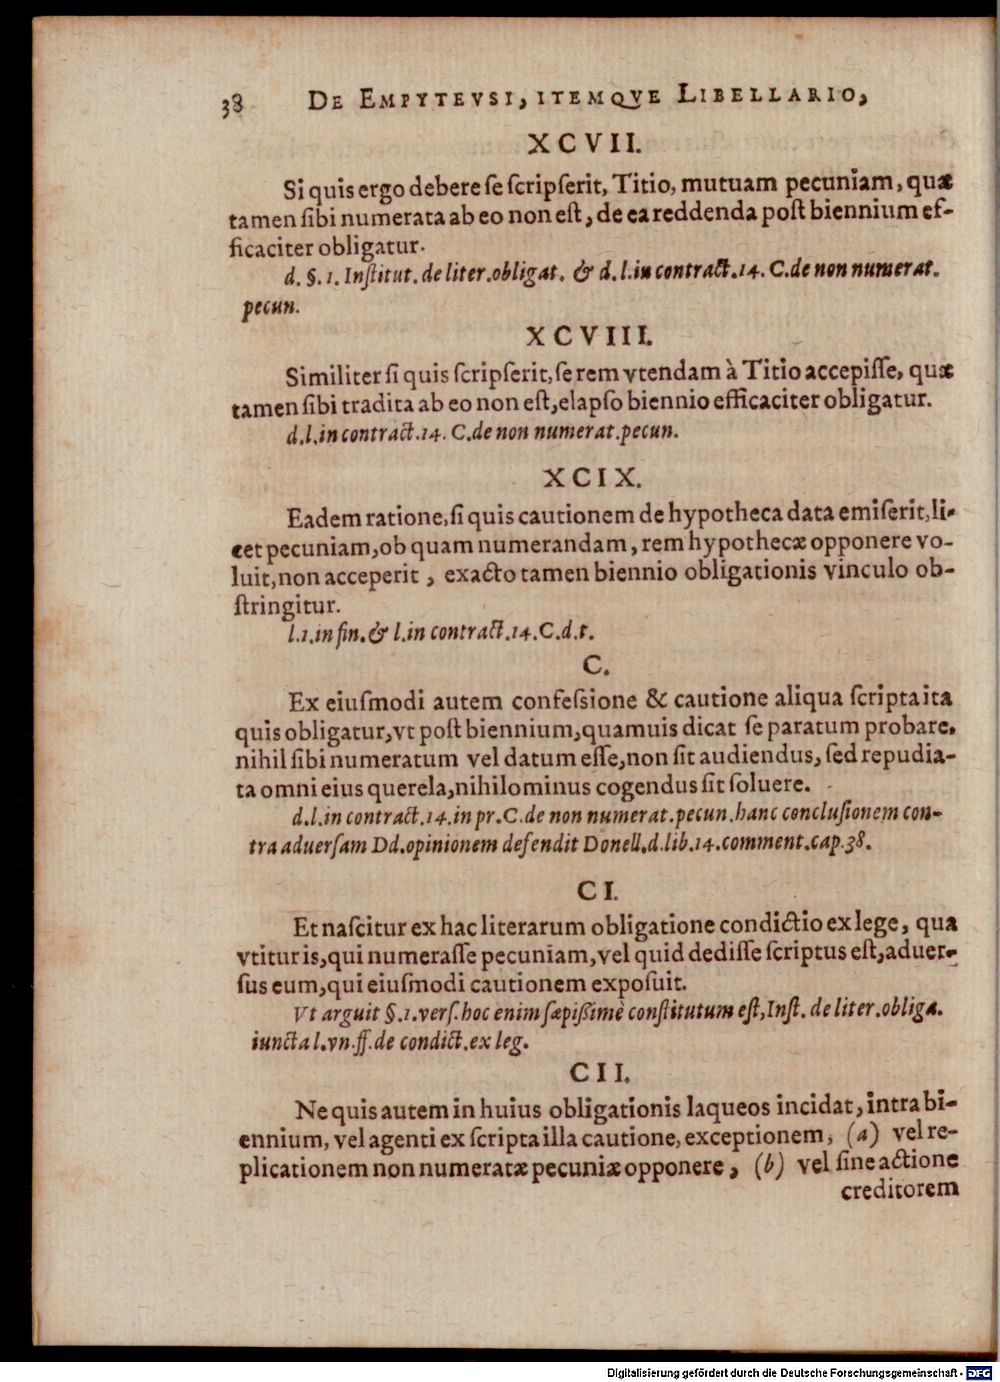 38 DE EMPYTEVSI, ITEMQVE LIBELLARIO,
XCVII.
Si quis ergo debere se scripserit, Titio, mutuam pecuniam, quæ
tamen sibi numerata ab eo non est, de ea reddenda post biennium ef-
ficaciter obligatur.
d. §. 1. Institut. de liter. obligat. & d. l. in contract. 14. C. de non numerat.
pecun.
XCVIII.
Similiter si quis scripserit, se rem vtendam à Titio accepisse, quæ
tamen sibi tradita ab eo non est, elapso biennio efficaciter obligatur.
d. l. in contract. 14. C. de non numerat. pecun.
XCIX.
Eadem ratione, si quis cautionem de hypotheca data emiserit, li-
cet pecuniam, ob quam numerandam, rem hypothecæ opponere vo-
luit, non acceperit, exacto tamen biennio obligationis vinculo ob-
stringitur.
l. 1. in fin. & l. in contract. 14. C. d. t.
C.
Ex eiusmodi autem confessione & cautione aliqua scripta ita
quis obligatur, vt post biennium, quamuis dicat se paratum probare,
nihil sibi numeratum vel datum esse, non sit audiendus, sed repudia-
ta omni eius querela, nihilominus cogendus sit soluere.
d. l. in contract. 14. in pr. C. de non numerat. pecun. hanc conclusionem con-
tra aduersam Dd. opinionem defendit Donell. d. lib. 14. comment. cap. 38.
CI.
Et nascitur ex hac literarum obligatione condictio ex lege, qua
vtitur is, qui numerasse pecuniam, vel quid dedisse scriptus est, aduer-
sus eum, qui eiusmodi cautionem exposuit.
Vt arguit §. 1. vers. hoc enim sæpißimè constitutum est, Inst. de liter. obliga.
iuncta l. vn. ff. de condict. ex leg.
CII.
Ne quis autem in huius obligationis laqueos incidat, intra bi-
ennium, vel agenti ex scripta illa cautione, exceptionem, (a) vel re-
plicationem non numeratæ pecuniæ opponere, (b) vel sine actione
creditorem
Digitalisierung gefördert durch die Deutsche Forschungsgemeinschaft - DFG